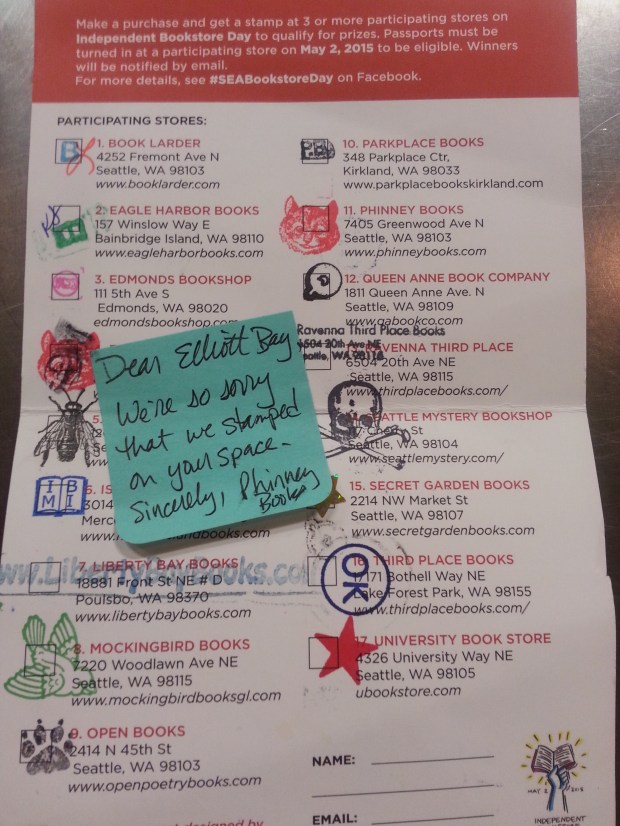 Make a purchase and get a stamp at 3 or more participating stores on
Independent Bookstore Day to qualify for prizes. Passports must be
turned in at a participating store on May 2, 2015 to be eligible. Winners
will be notified by email.
For more details, see #SEABookstoreDay on Facebook.
PARTICIPATING STORES:
1. BOOK LARDER
4252 Fremont Ave N
Seattle, WA 98103
www.booklarder.com
B
2. EAGLE HARBOR BOOKS
157 Winslow Way E
Bainbridge Island, WA 98110
www.eagleharborbooks.com
3. EDMONDS BOOKSHOP
111 5th Ave S
Edmonds, WA 98020
edmondsbookshop.com
Dear Elliott Bay
We're so sorry
that we stamped
on your space.
Sincerely, Phinney
Books
5.
6. IS
3014
Merc
www.
ndbooks.com
I B
M I
7. LIBERTY BAY BOOKS
18881 Front St NE # D
Poulsbo, WA 98370
www.libertybaybooks.com
www.LibertyBayBooks.co
8. MOCKINGBIRD BOOKS
7220 Woodlawn Ave NE
Seattle, WA 98115
www.mockingbirdbooksgl.com
9. OPEN BOOKS
2414 N 45th St
Seattle, WA 98103
www.openpoetrybooks.com
designed by
10. PARKPLACE BOOKS
348 Parkplace Ctr,
Kirkland, WA 98033
www.parkplacebookskirkland.com
PB
11. PHINNEY BOOKS
7405 Greenwood Ave N
Seattle, WA 98103
www.phinneybooks.com
12. QUEEN ANNE BOOK COMPANY
1811 Queen Anne Ave. N
Seattle, WA 98109
www.qabookco.com
Ravenna Third Place Books
6504 20th Ave NE
Seattle, WA 98115
RAVENNA THIRD PLACE
6504 20th Ave NE
Seattle, WA 98115
www.thirdplacebooks.com/
SEATTLE MYSTERY BOOKSHOP
St
Seattle, WA 98104
www.seattlemystery.com/
15. SECRET GARDEN BOOKS
2214 NW Market St
Seattle, WA 98107
www.secretgardenbooks.com
16. THIRD PLACE BOOKS
17171 Bothell Way NE
Lake Forest Park, WA 98155
www.thirdplacebooks.com/
OK
17. UNIVERSITY BOOK STORE
4326 University Way NE
Seattle, WA 98105
ubookstore.com
NAME:
EMAIL:
MAY 2 2015
INDEPENDENT